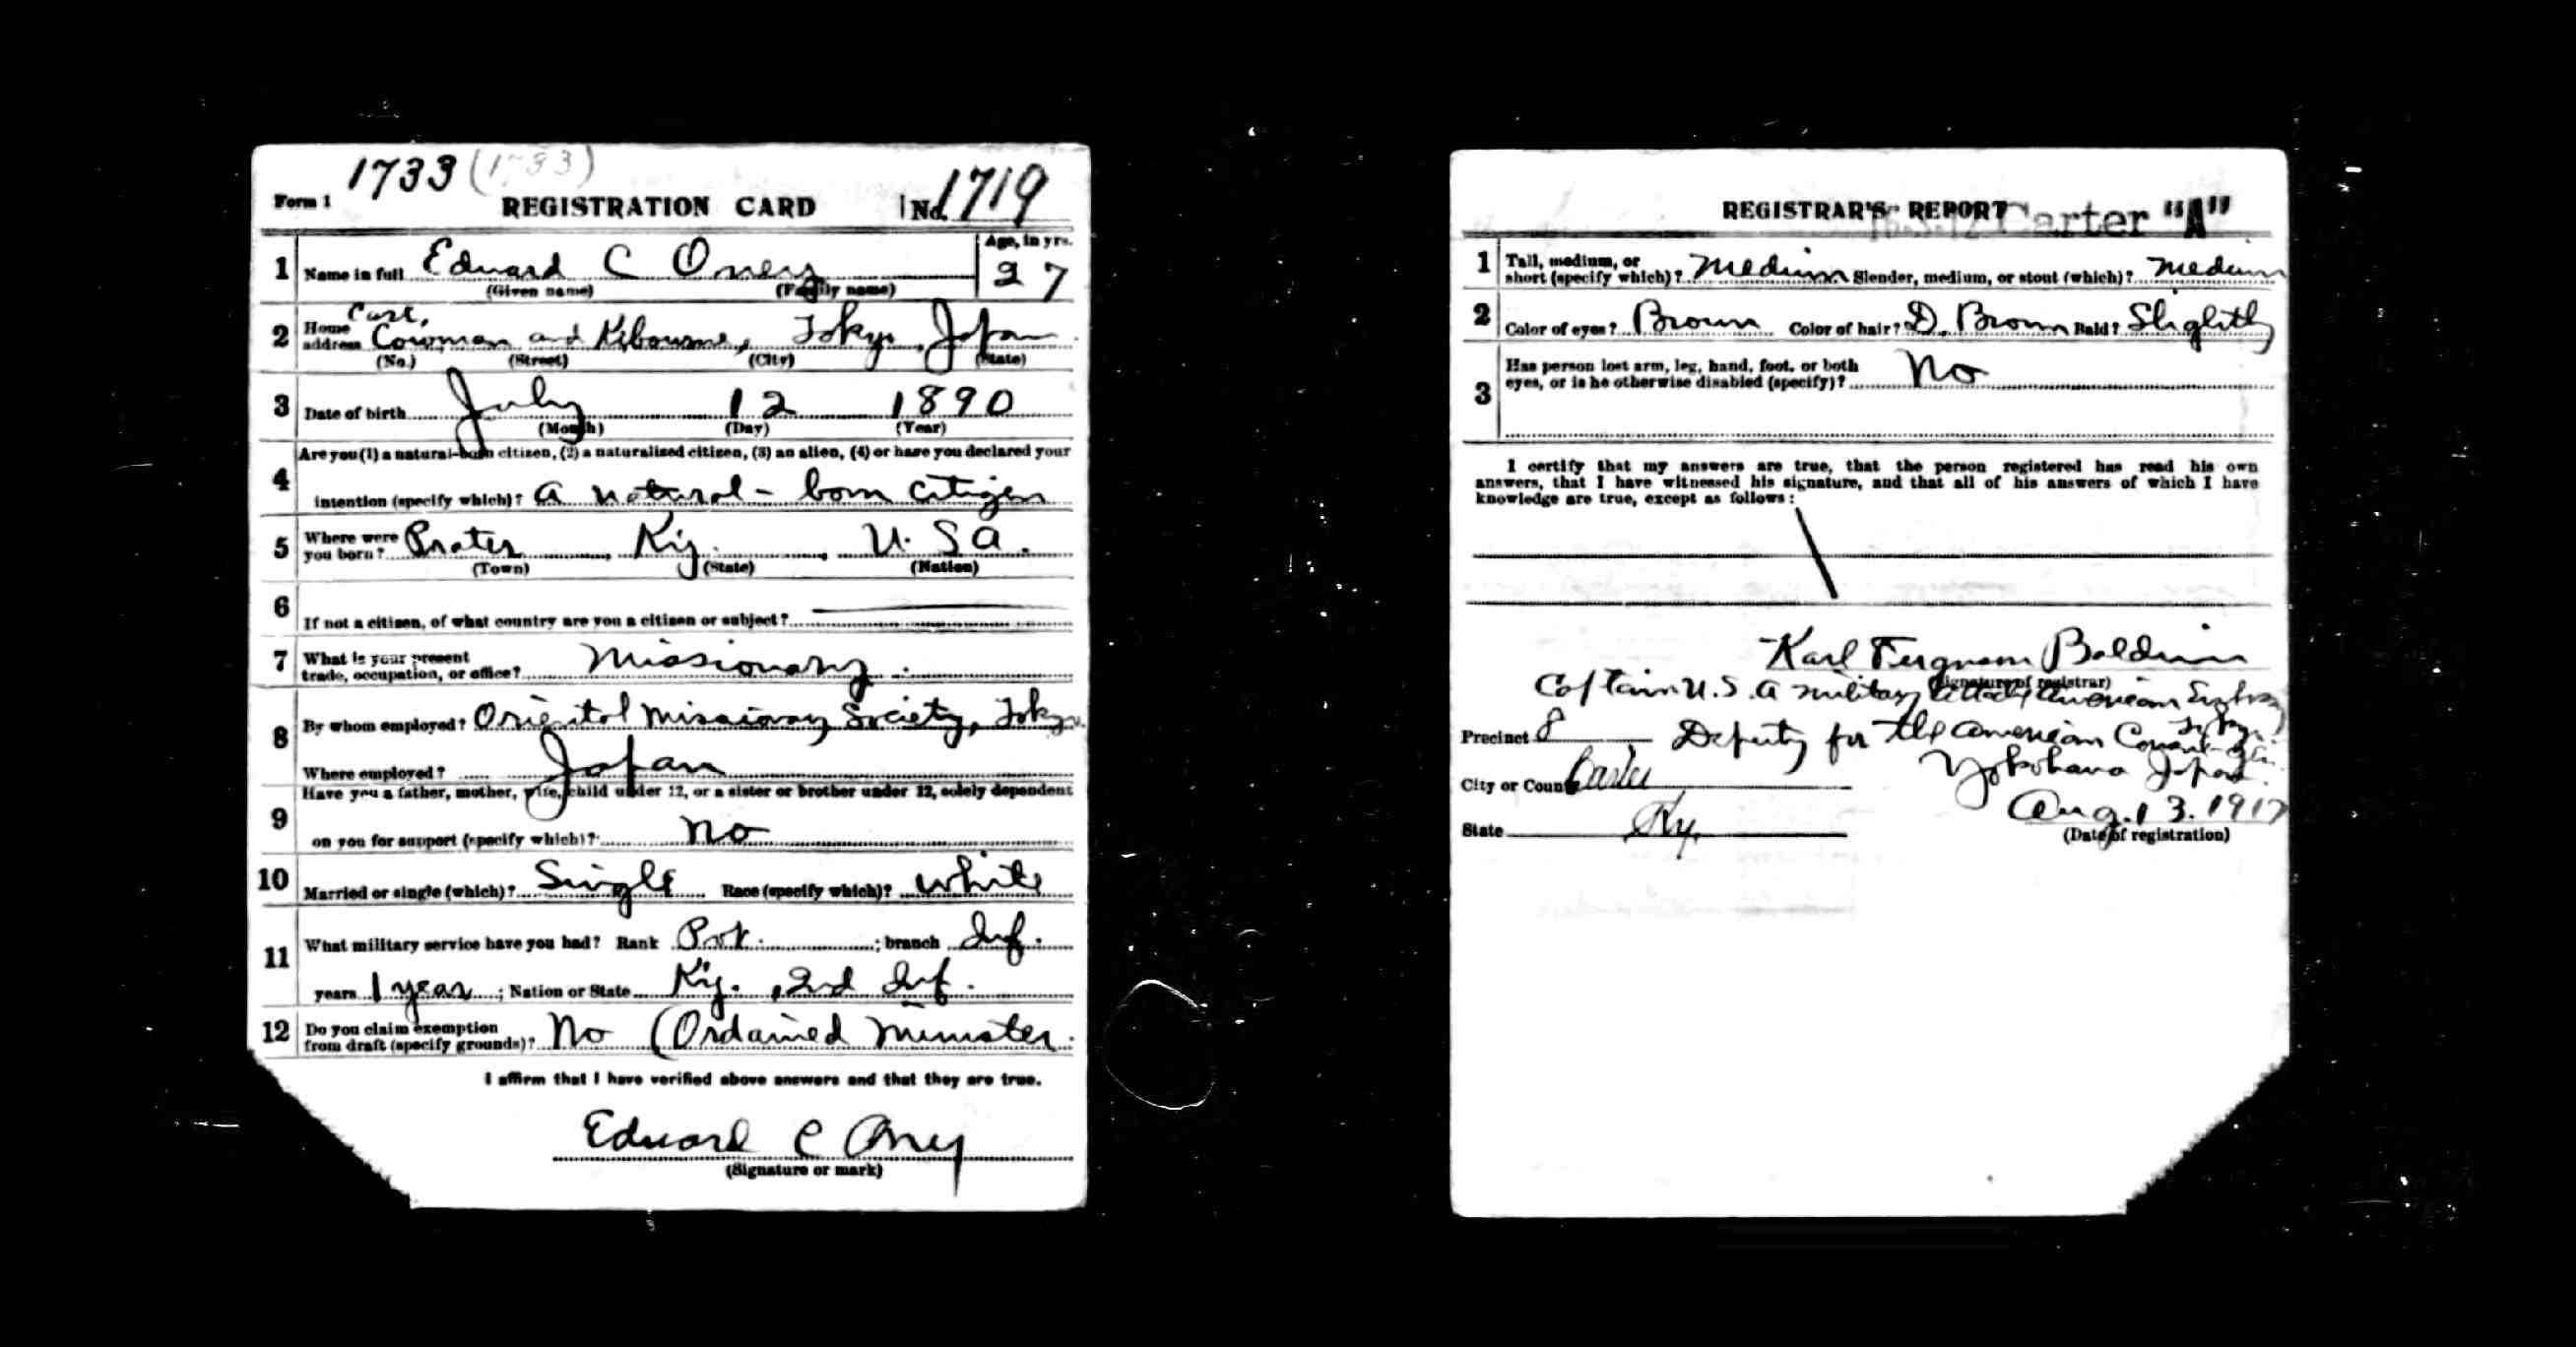 1733 (1733)
Form 1 REGISTRATION CARD No. 1719
1 Name in full Edward C Oney Age, in yrs. 27
(Given name) (Family name)
Care,
2 Home address Cowman and Kilbourne, Tokyo, Japan
(No.) (Street) (City) (State)
3 Date of birth July 12 1890
(Month) (Day) (Year)
Are you (1) a natural-born citizen, (2) a naturalized citizen, (3) an alien, (4) or have you declared your
4 intention (specify which)? a natural-born citizen
5 Where were you born? Prater, Ky., U. S a.
(Town) (State) (Nation)
6 If not a citizen, of what country are you a citizen or subject?
7 What is your present trade, occupation, or office? Missionary.
8 By whom employed? Oriental Missionary Society, Tokyo
Where employed? Japan
Have you a father, mother, wife, child under 12, or a sister or brother under 12, solely dependent
9 on you for support (specify which)? no
10 Married or single (which)? Single Race (specify which)? white
11 What military service have you had? Rank Pvt. ; branch Inf.
years 1 year ; Nation or State Ky., 2nd Inf.
12 Do you claim exemption from draft (specify grounds)? No (Ordained Minister.
I affirm that I have verified above answers and that they are true.
Edward C Oney
(Signature or mark)
REGISTRAR'S REPORT Carter "A"
1 Tall, medium, or short (specify which)? Medium Slender, medium, or stout (which)? medium
2 Color of eyes? Brown Color of hair? D. Brown Bald? Slightly
3 Has person lost arm, leg, hand, foot, or both eyes, or is he otherwise disabled (specify)? No
I certify that my answers are true, that the person registered has read his own
answers, that I have witnessed his signature, and that all of his answers of which I have
knowledge are true, except as follows:
Karl Ferguson Baldwin
(Signature of registrar)
Captain U.S. a military attaché American Embassy
Tokyo
Precinct 8 Deputy for the American Consul-Gen.
Yokohama Japan
City or County Carter
Aug. 13. 1917
State Ky. (Date of registration)